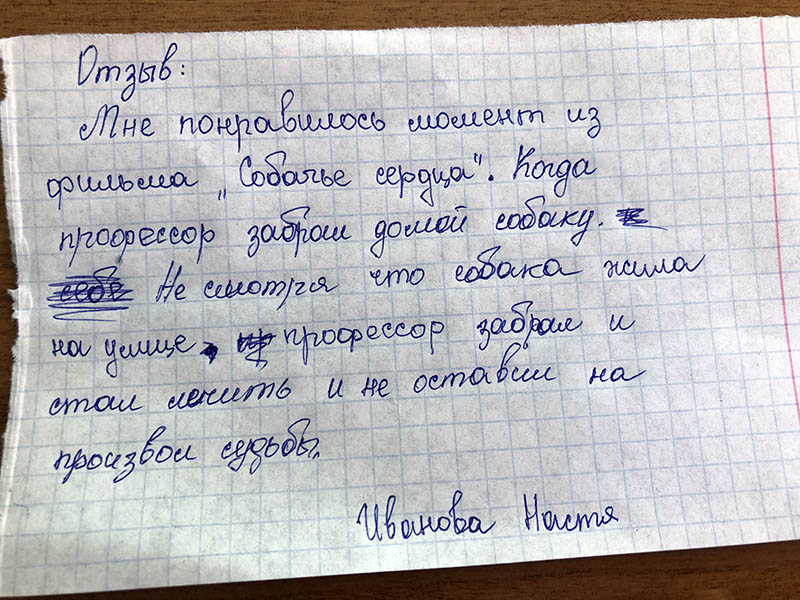 Отзыв:
Мне понравилось момент из
фильма "Собачье сердца". Когда
профессор забрал домой собаку.
Не смотря что собака жила
на улице, профессор забрал и
стал лечить и не оставил на
произвол судьбы.
Иванова Настя